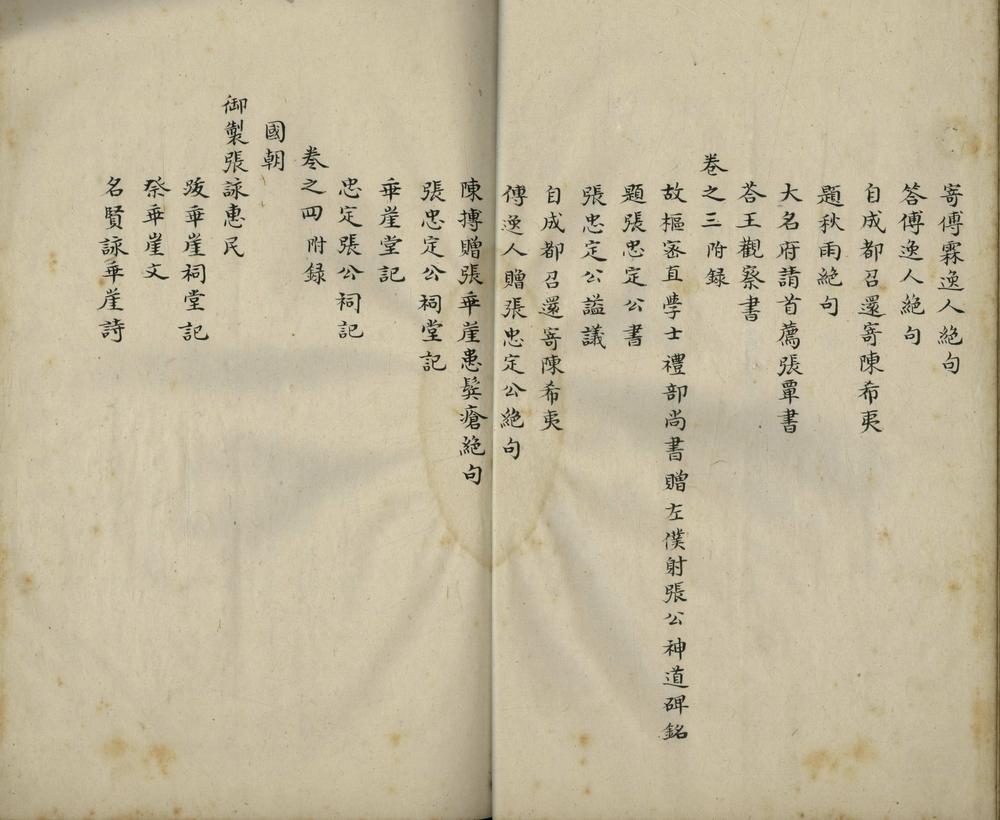 寄傅霖逸人絕句
答傅逸人絕句
自成都召還寄陳希夷
題秋雨絕句
大名府請首薦張覃書
荅王觀察書
卷之三附録
故樞密直學士禮部尚書贈左僕射張公神道碑銘
題張忠定公書
張忠定公謚議
自成都召還寄陳希夷
傅逸人贈張忠定公絕句
陳摶贈張乖崖患鬢瘡絕句
張忠定公祠堂記
乖崖堂記
忠定張公祠記
卷之四附録
國朝
御製張詠惠民
跋乖崖祠堂記
祭乖崖文
名賢詠乖崖詩